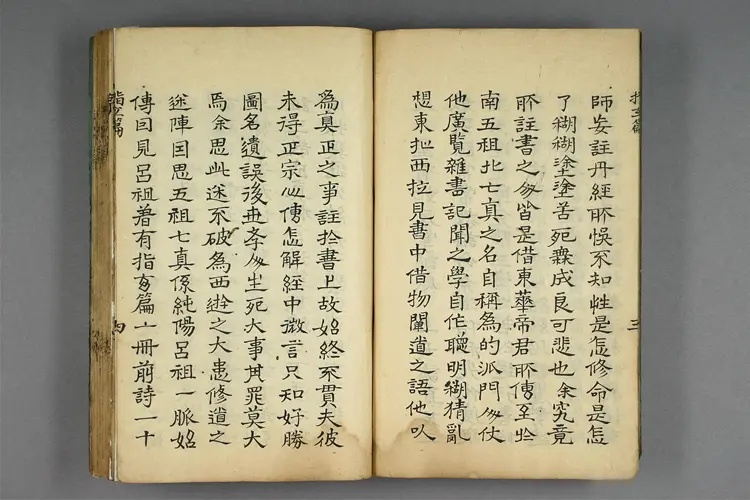 指玄篇
三
師妄註丹經所悞不知性是怎修命是怎
了糊糊塗塗苦死無成良可悲也余究竟
所註書之人皆是借東華帝君所傳至於
南五祖北七真之名自稱為的派門人仗
他廣覽雜書記聞之學自作聰明糊猜亂
想東扯西拉見書中借物闡道之語他以
為真正之事註於書上故始終不貫夫彼
未得正宗心傳怎解經中微言只知好勝
圖名遺誤後世斈人生死大事其罪莫大
焉余思此迷不破為西遊之大患修道之
迷陣因思五祖七真係純陽呂祖一脈始
傳因見呂祖著有指玄篇一冊前詩一十
指玄篇
四